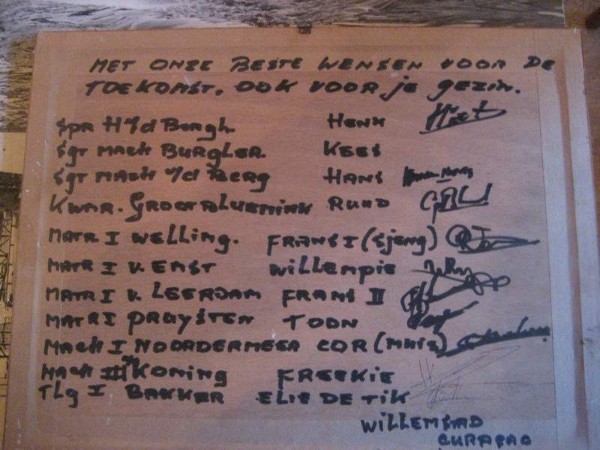 MET ONZE BESTE WENSEN VOOR DE
TOEKOMST, OOK VOOR je gezin.
Spr H v/d Bergh. HENK
Sgt MACH BURGLER. KEES
Sgt MACH v/d BERG HANS
KWMR. GROOTALUEMINK RUUD
MATR I WELLING. FRANS I (SJENG)
MATR I v. EMST WILLEMPIE
MATR I v. LEERDAM FRANS II
MATR I PRUYSTEN TOON
MACH I NOORDERMEER COR (MUIS)
MACH III KONING FREEKIE
TLG I BAKKER ELIE DE TIK
WILLEMSTAD
CURAÇAO